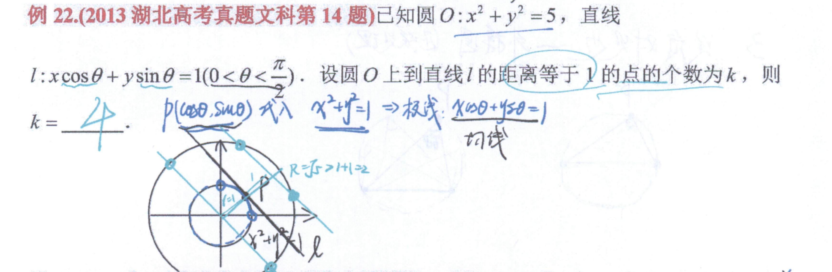 例 22.(2013 湖北高考真题文科第 14 题)已知圆 O:x²+y²=5，直线
l:xcosθ+ysinθ=1(0<θ<π/2)．设圆 O 上到直线 l 的距离等于 1 的点的个数为 k，则
k=4.
P(cosθ,sinθ) 代入 x²+y²=1 ⇒极线: xcosθ+ysθ=1
切线
R=√5>1+1=2
1
P
r=1
x²+y²=1
l